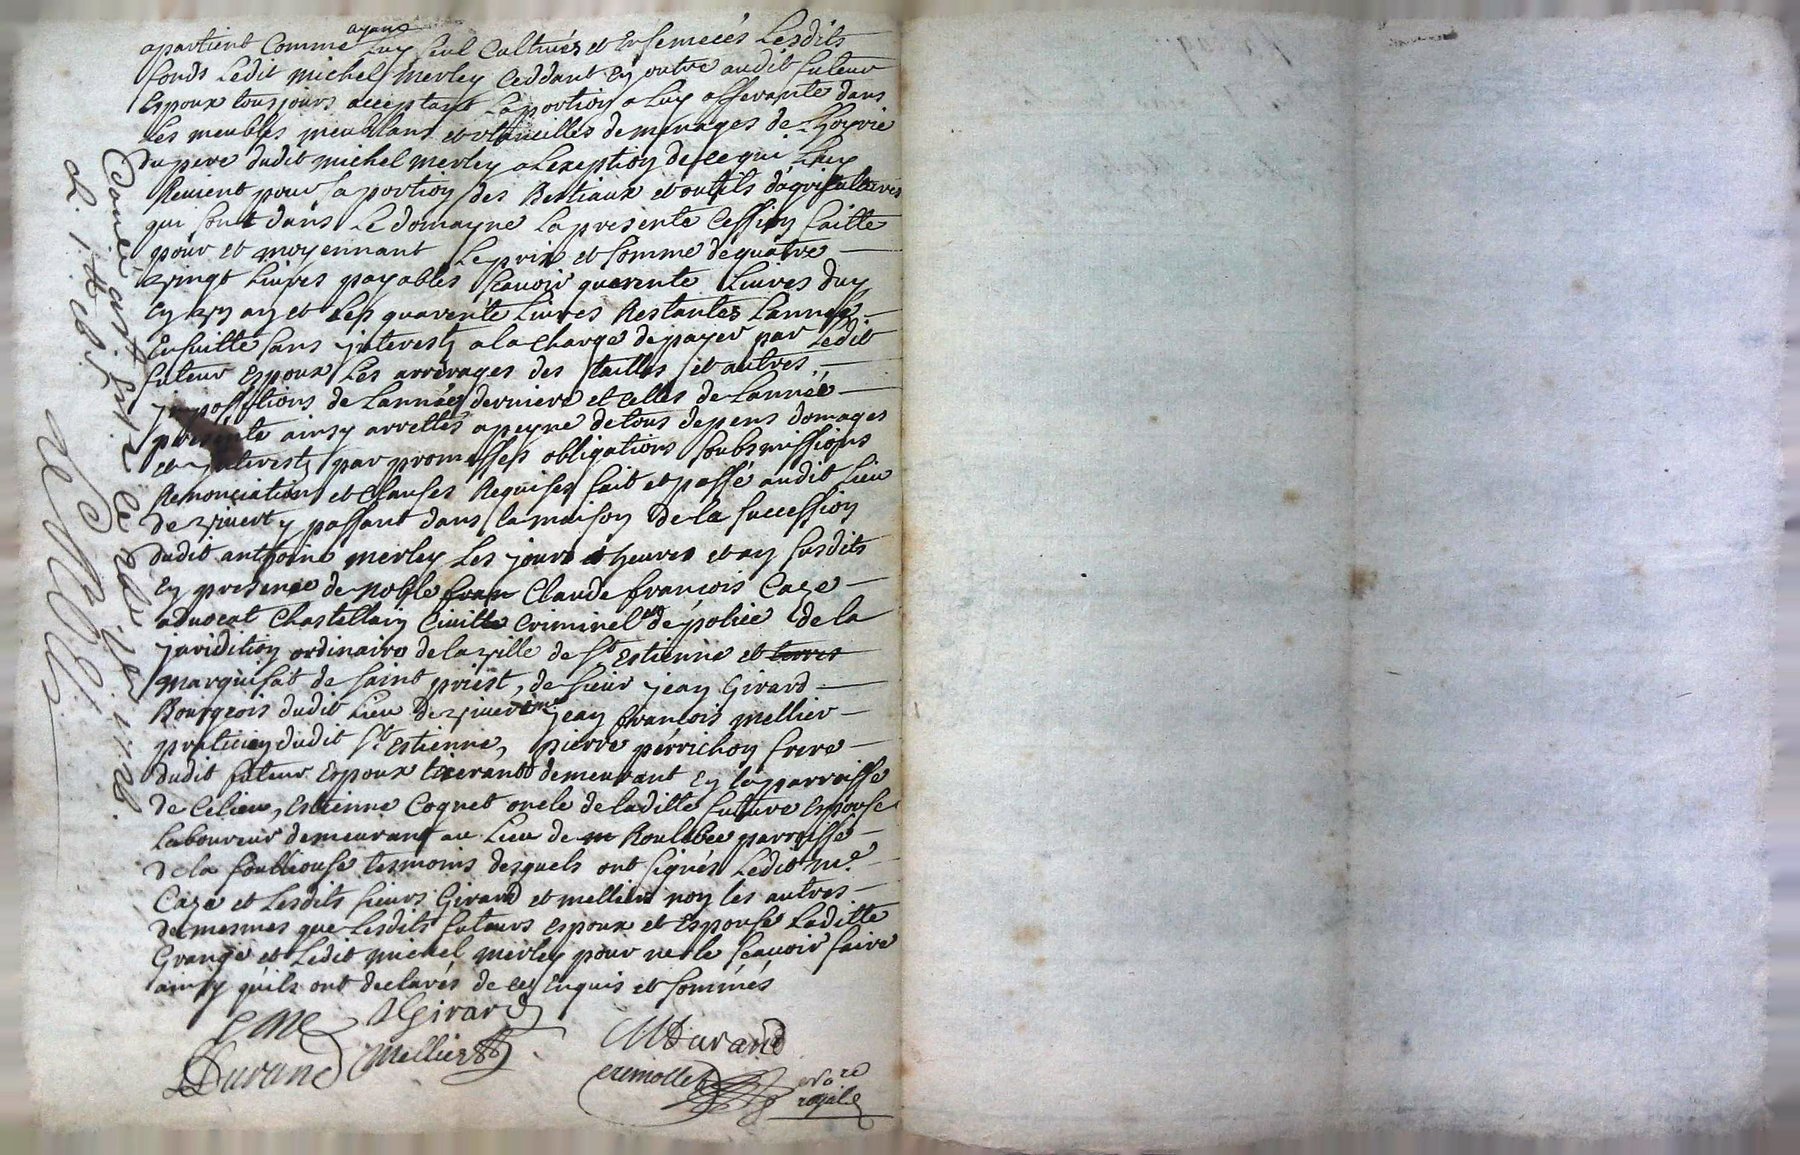 apartient comme ayant luy seul cultivés et ensemecés lesdits
fonds ledit michel merley ceddant en outre audit futeur
Espoux tousjours acceptant la portion a luy afferante dans
les meubles meublans et ultancilles de menages de
du pere dudit michel merley a lexeption de ce qui luy
Revient pour sa portion des Bestiaux et outils dagricultures
qui sont dans le domayne la presente cession faitte
pour et moyennant le prix et somme de quatre
vingt livres payables scavoir quarente livres duy
en un an et les quarente livres Restantes lannée
Ensuitte sans interests a la charge de payer par ledit
futeur Espoux les arrerages des tailles et autres
impositions de lannée derniere et celles de lannée
presente ainsy arrettés a peyne de tous depens domages
et interests par promesses obligations soubsmissions
Renonciations et clauses Requises fait et passé audit lieu
de passant dans la maison de la succession
dudit anthoine merley les jours et heures et an susdits
En presence de noble fran Claude françois Caze
advocat chastellain civille criminel et de police de la
juridition ordinaire de la ville de St Estienne et terres
marquisat de saint priest, de sieur jean Girard
Bourgeois dudit lieu de me jean francois mellier
praticien dudit St Estienne, pierre perrichon frere
dudit futeur Espoux tixerandt demeurant En la parroisse
de Celieu, Estienne Coquet oncle de laditte future Espouse
laboureur demeurant au lieu de m Roulebee parroisse
de la foullouse tesmoins desquels ont signés ledit me
Caze et lesdits sieurs Girard et mellier non les autres
de mesmes que lesdits futeurs espoux et Espouse laditte
Grange et ledit michel merley pour ne le scavoir faire
ainsy quils ont declarés de ce Enquis et sommés
Girard
Durand Mellier
MDurand
cremollet nore
royale